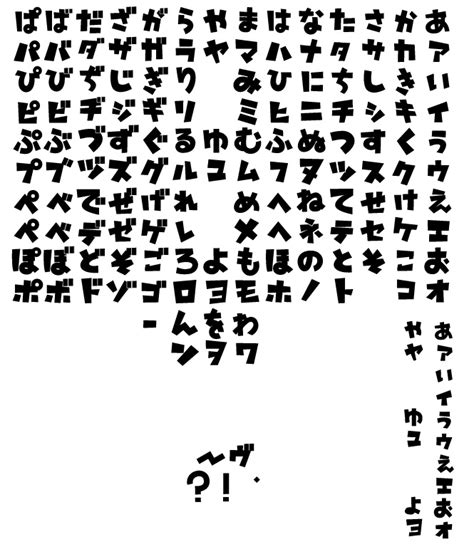 あアいイうウえエおオ
かカきキくクけケこコ
さサしシすスせセそ
たタちチつツてテとト
なナにニぬヌねネのノ
はハひヒふフへヘほホ
まマみミむムめメもモ
やヤ ゆユ よヨ
らラりリるルれレろロ
がガぎギぐグげゲごゴ
ざザじジずズぜゼぞゾ
だダぢヂづヅでデどド
ばバびビぶブべベぼボ
ぱパぴピぷプぺペぽポ
わワ
をヲ
んン
ー
ぁァぃィぅゥぇェぉォ
ゃャ ゅュ ょョ
ヴ・
〜!
?